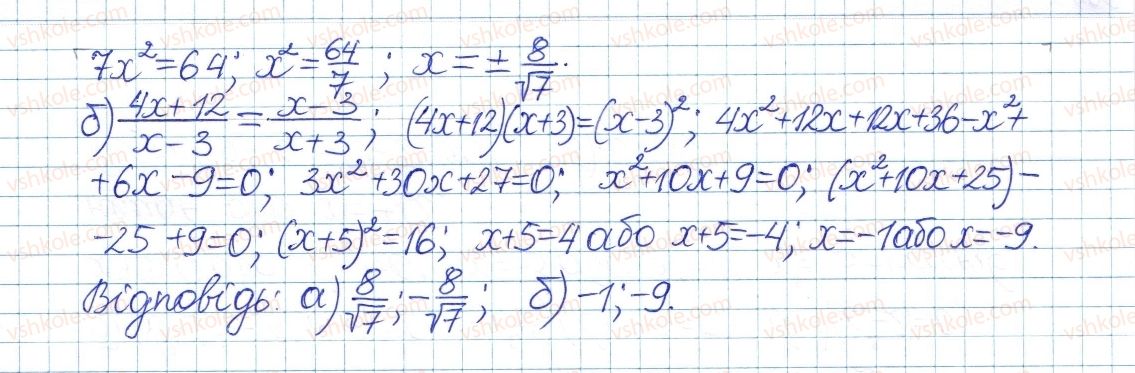 7x²=64; x²=64/7; x=±8/√7.
б) (4x+12)/(x-3)=(x-3)/(x+3); (4x+12)(x+3)=(x-3)²; 4x²+12x+12x+36-x²+
+6x-9=0; 3x²+30x+27=0; x²+10x+9=0; (x²+10x+25)-
-25+9=0; (x+5)²=16; x+5=4 або x+5=-4; x=-1 або x=-9.
Відповідь: а) 8/√7; -8/√7; б) -1; -9.